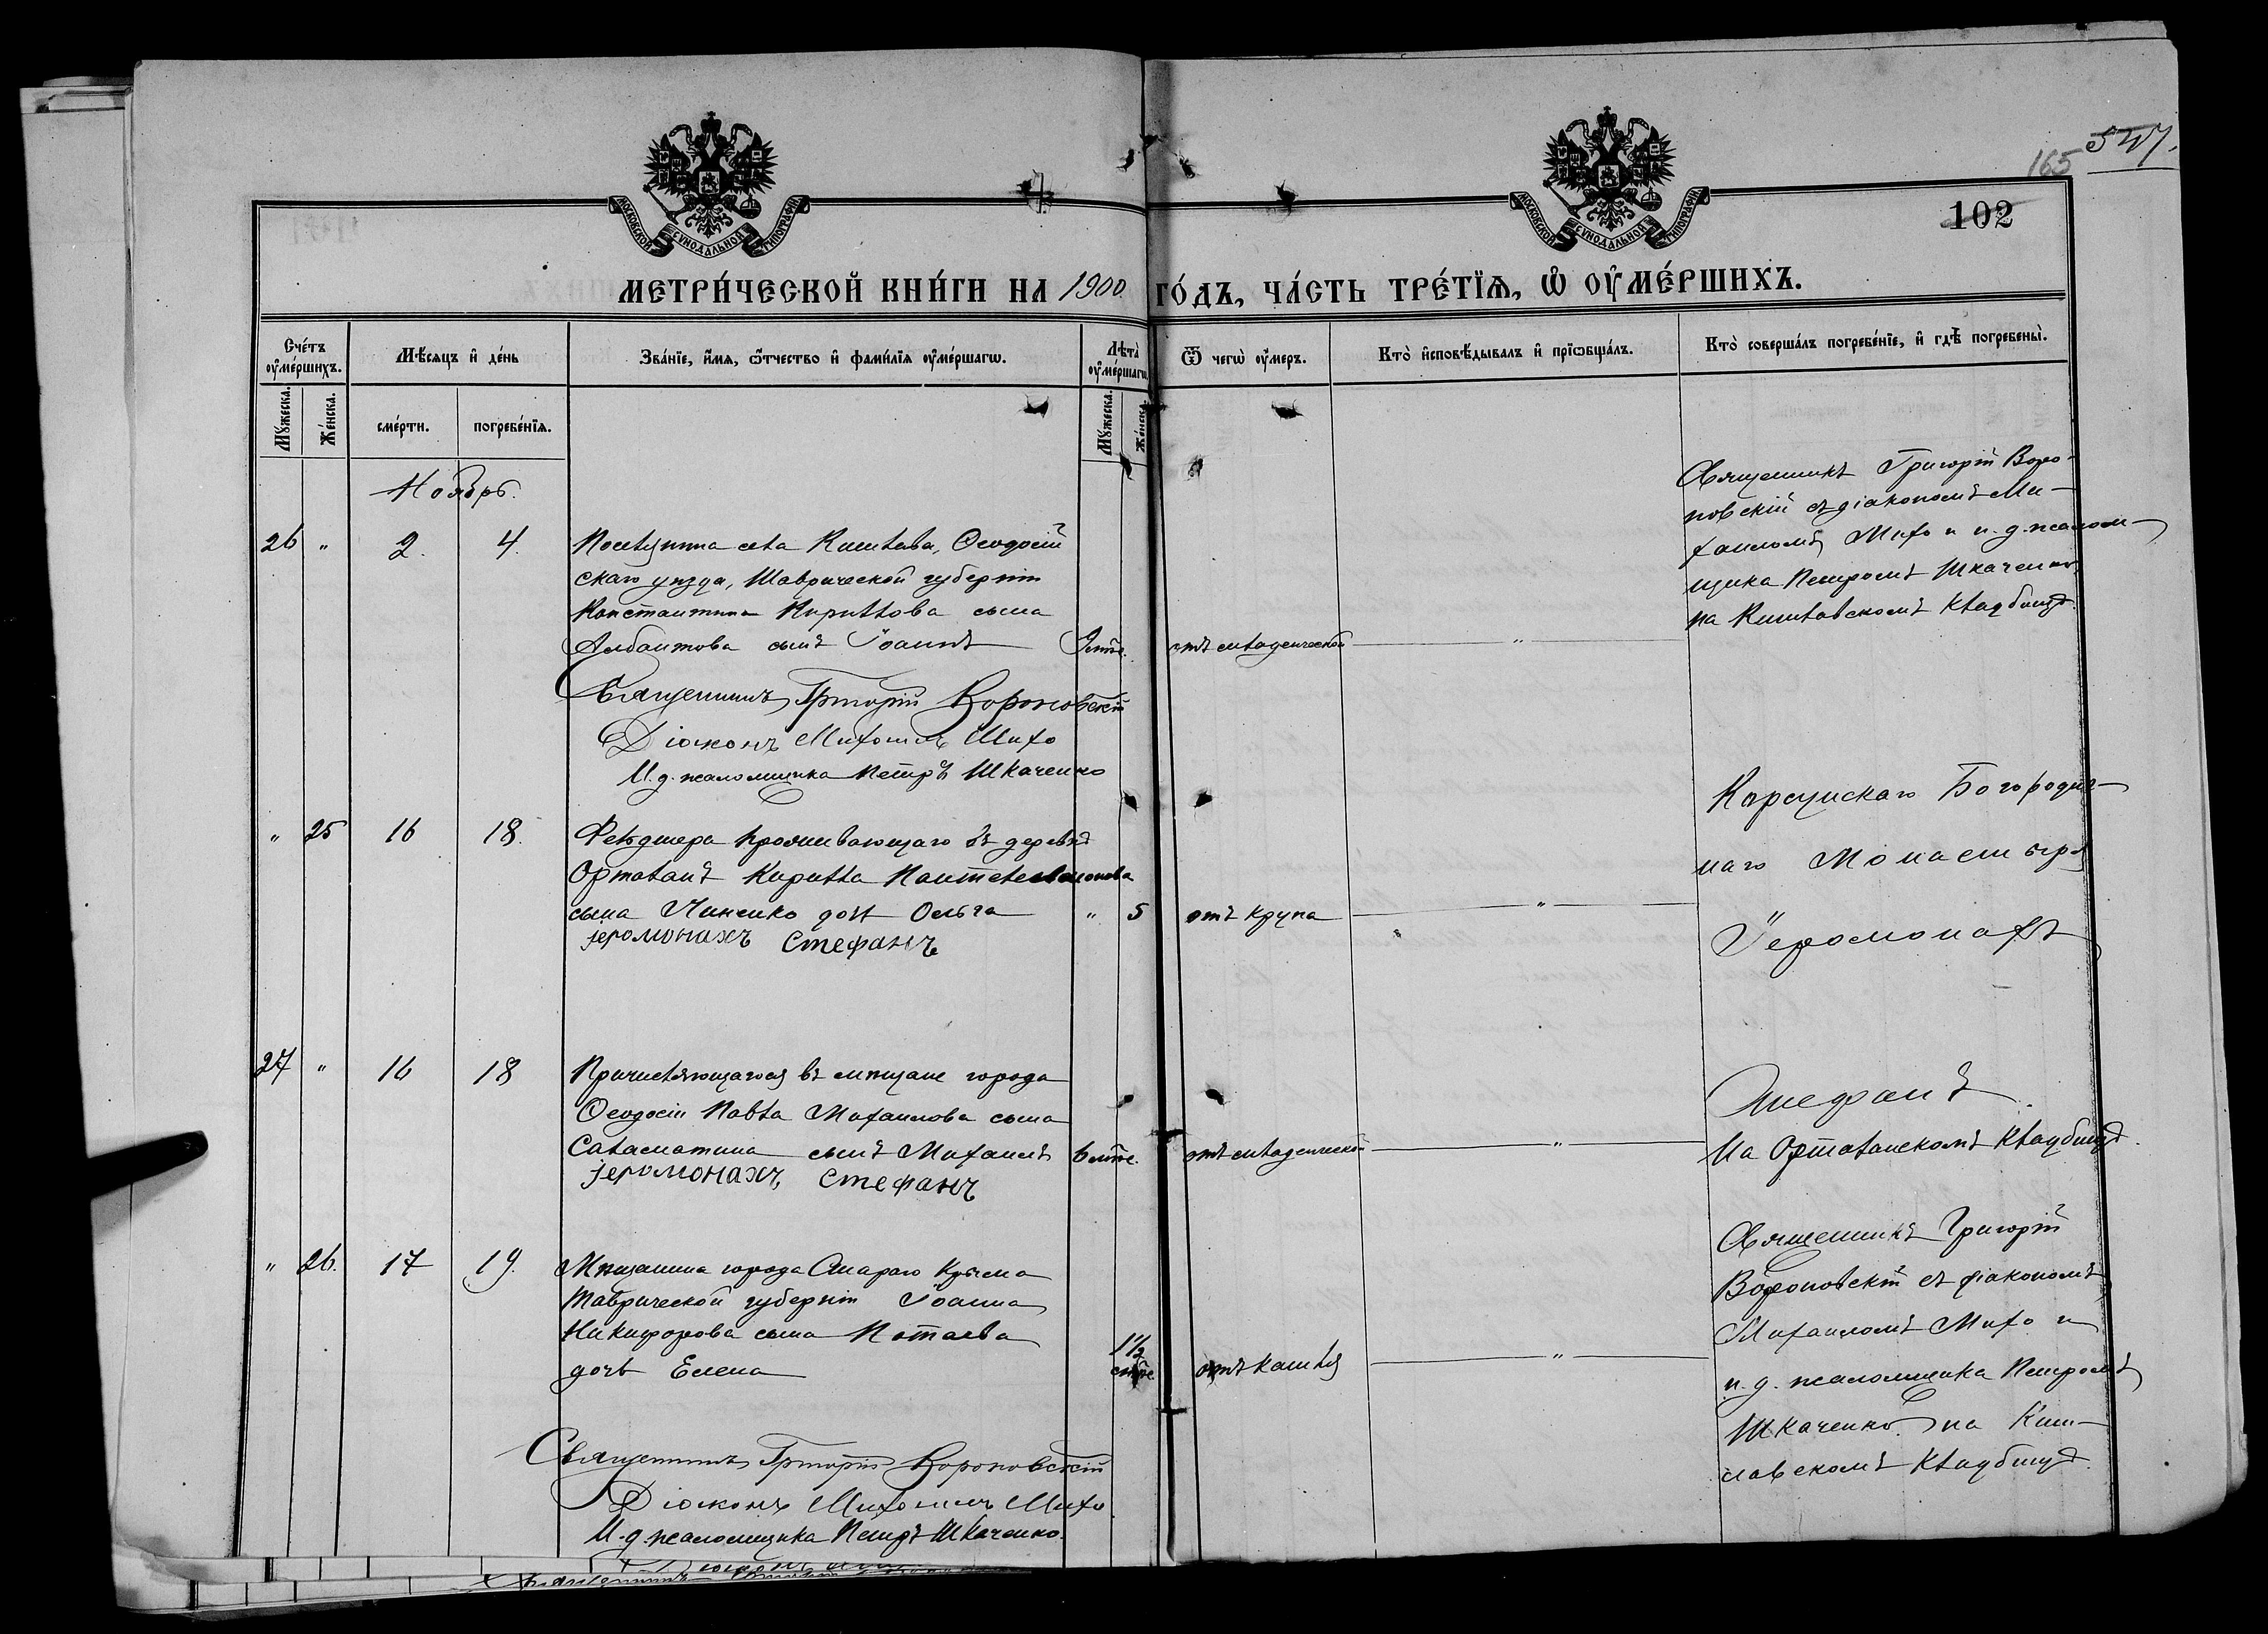 547.
165
102
МОСКОВСКОЙ СѴНОДАЛЬНОЙ ТИПОГРАФІИ
МОСКОВСКОЙ СѴНОДАЛЬНОЙ ТИПОГРАФІИ
МЕТРИ́ЧЕСКОЙ КНИ́ГИ НА 1900 ГО́ДЪ, ЧА́СТЬ ТРЕ́ТІЯ, Ѡ ОУМЕ́РШИХЪ.
Сче́тъ оуме́ршихъ.
Мѣ́сяцъ и де́нь
Зва́ніе, и́мя, ѻ҆́тчество и фами́лія оуме́ршагѡ.
Лѣ́та оуме́ршагѡ.
Ѿ чегѡ̀ оу́меръ.
Кто̀ исповѣ́дывалъ и пріѡбща́лъ.
Кто̀ соверша́лъ погребе́ніе, и гдѣ̀ погребены̀.
Мꙋ́жеска.
Же́нска.
сме́рти.
погребе́нія.
Мꙋ́жеска.
Же́нска.
Ноябрь.
26 " 2. 4.
Поселянина села Кишлава, Ѳеодосій
скаго уѣзда, Таврической губерніи
Константина Кириллова сына
Арбантова сынъ Іоаннъ
отъ младенческой "
Священникъ Григорій Воро-
новскій съ діакономъ Ми-
хаиломъ Михо и и. д. псалом-
щика Петромъ Шкаченко,
на Кишлавскомъ кладбищѣ.
Священникъ Григорій Вороновскій
Діаконъ Михаилъ Михо
И. д. псаломщика Петръ Шкаченко
" 25 16 18.
Фельдшера проживающаго въ деревнѣ
Орталанъ Кирилла Пантелеимонова
сына Линенко дочь Ольга " 5 отъ крупа "
Іеромонахъ Стефанъ
Корсунскаго Богородич-
наго Монастыря
Іеромонахъ
27 " 16 18
Причисляющагося въ мѣщане города
Ѳеодосіи Павла Михаилова сына
Саламатина сынъ Михаилъ 6 мѣс. отъ младенческой "
Іеромонахъ Стефанъ
Стефанъ
На Орталанскомъ кладбищѣ.
" 26. 17 19.
Мѣщанина города Стараго Крыма
Таврической губерніи Іоанна
Никифорова сына Потаева
дочь Елена 1½ мѣс. отъ кашля "
Священникъ Григорій
Вороновскій съ діакономъ
Михаиломъ Михо и
и. д. псаломщика Петромъ
Шкаченко на Киш-
лавскомъ кладбищѣ.
Священникъ Григорій Вороновскій
Діаконъ Михаилъ Михо
И. д. псаломщика Петръ Шкаченко.